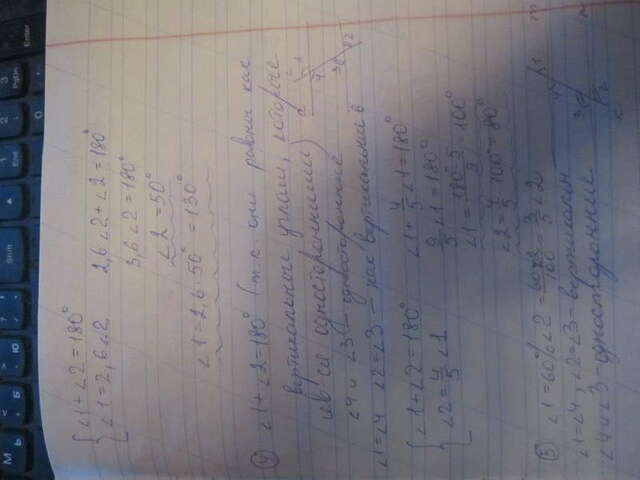 Shift
1
End
2
3
PgDn
Enter
∠1+∠2=180°
∠1=2,6∠2
2,6∠2+∠2=180°
3,6∠2=180°
∠2=50°
∠1=2,6·50°=130°
④ ∠1+∠2=180° (т.к. они равны как
вертикальные углам, которые
явл-ся односторонними)
∠4 и ∠3 – односторонние
∠1=∠4 ∠2=∠3 – как вертикальные
∠1+∠2=180°
∠2=4/5∠1
∠1+4/5∠1=180°
9/5∠1=180°
∠1=180°·5/9=100°
∠2=4/5·100°=80°
⑤ ∠1=60%∠2=60∠2/100=3/5∠2
∠1=∠4, ∠2=∠3 – вертикальн
∠4 и ∠3 – односторонние
a
c
1
4
3
2
1
4
3
2
m